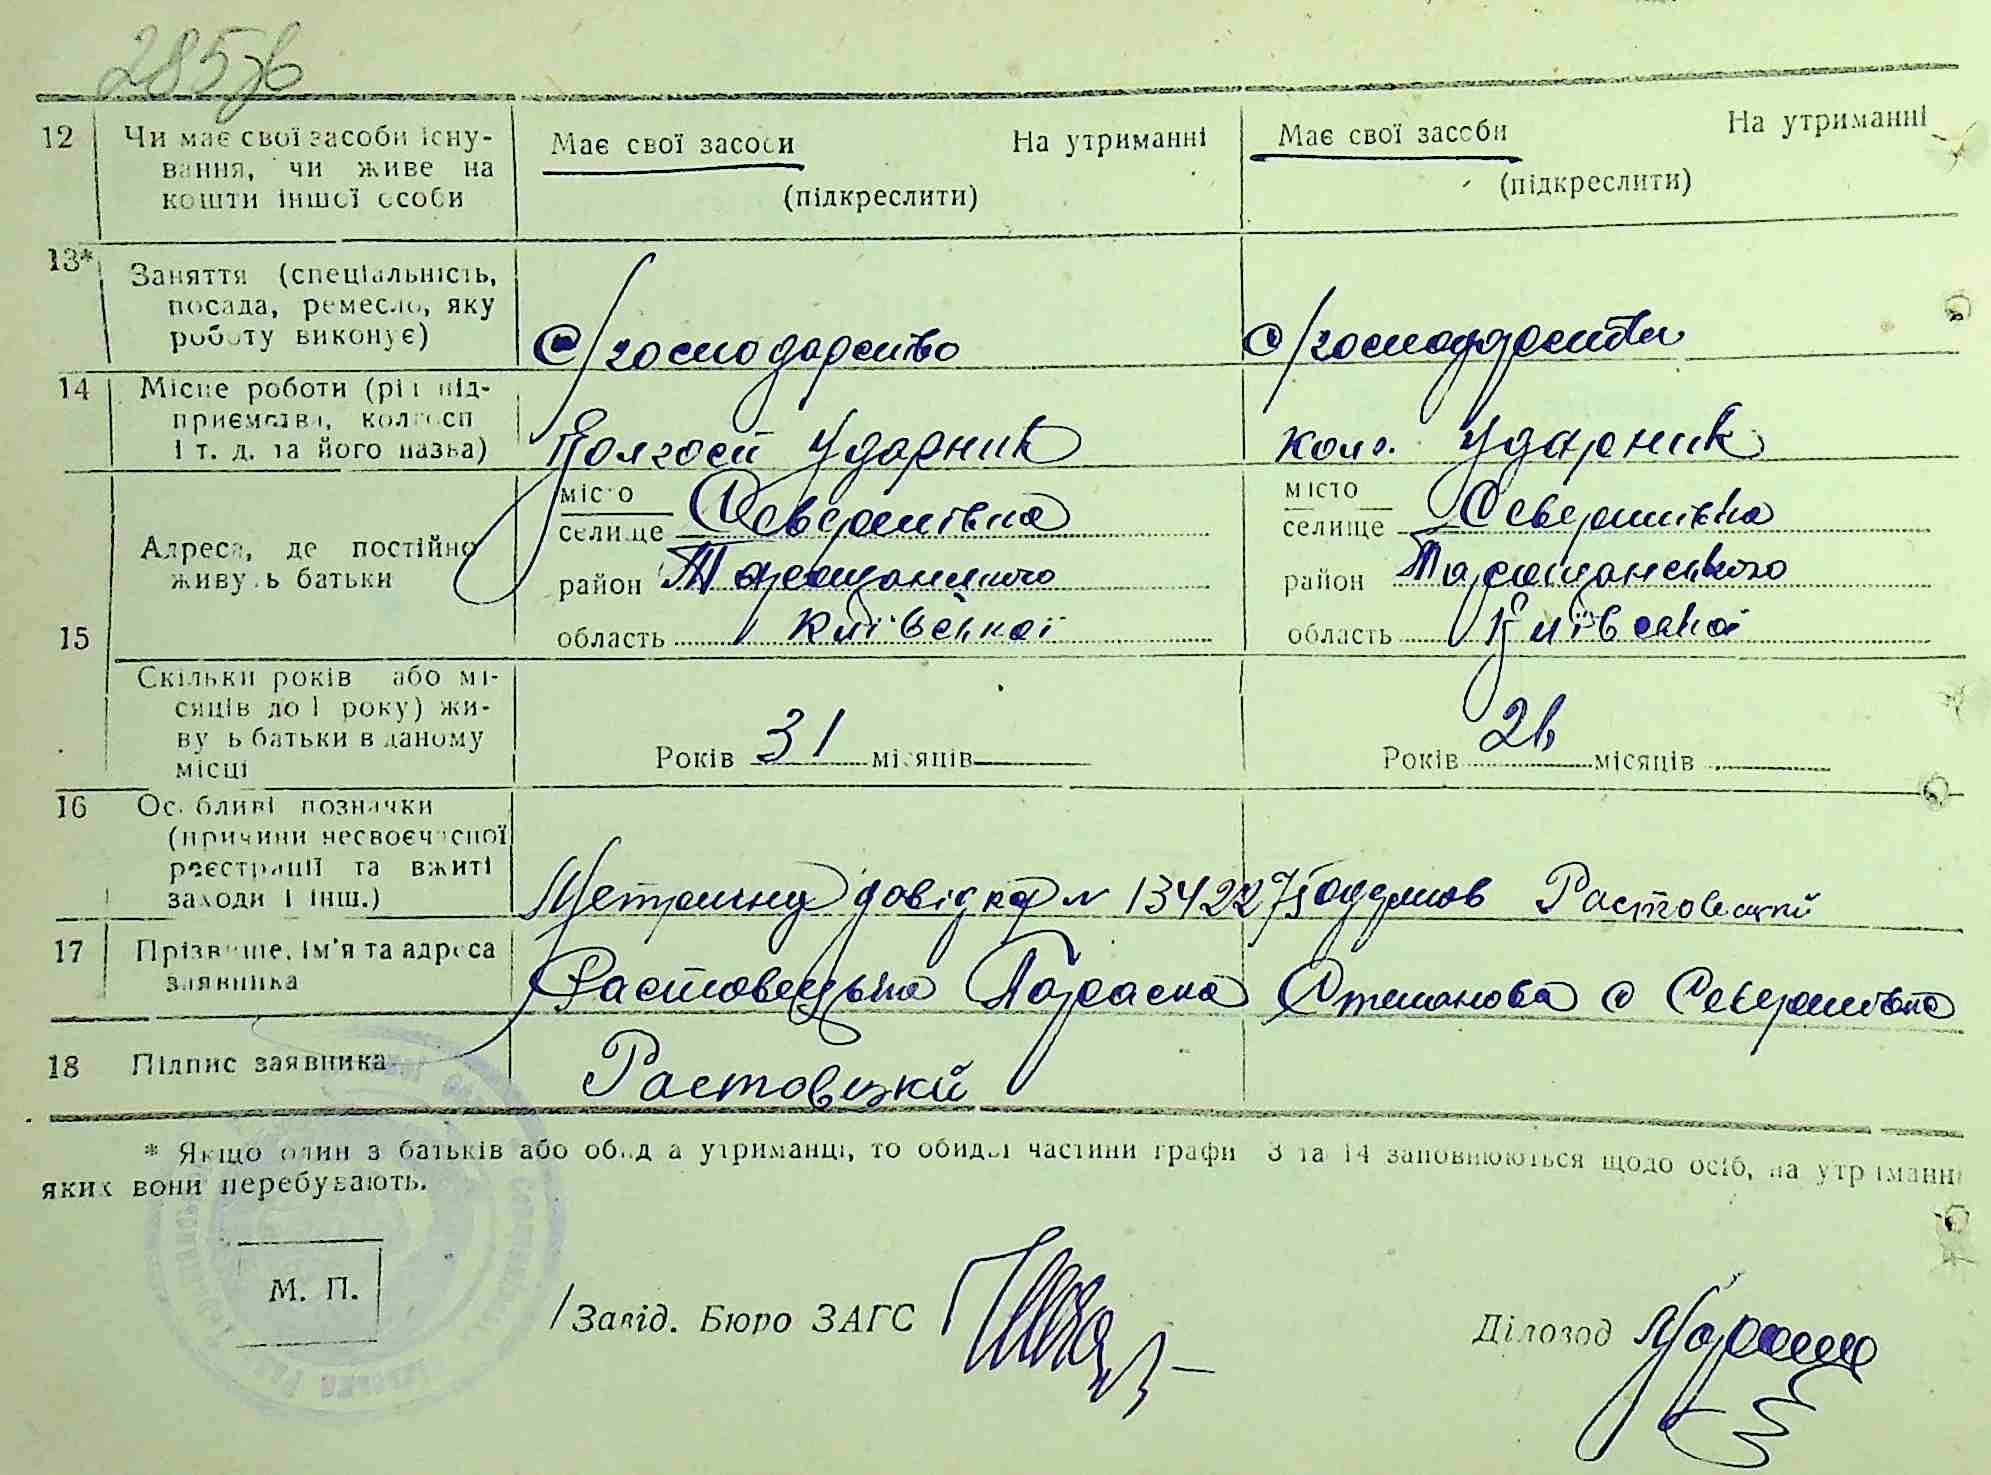 285зв
12 Чи має свої засоби існу-
вання, чи живе на
кошти іншої особи
Має свої засоби На утриманні
(підкреслити)
Має свої засоби На утриманні
(підкреслити)
13* Заняття (спеціальність,
посада, ремесло, яку
роботу виконує)
С/господарство
с/господарства
14 Місце роботи (рід під-
приємства, колгосп
і т. д. та його назва)
Колгосп Ударник
колг. Ударник
15 Адреса, де постійно
живуть батьки
місто
селище Северинівка
район Таращанського
область Київської
місто
селище Северинівка
район Таращанського
область Київської
Скільки років або мі-
сяців до 1 року) жи-
вуть батьки в даному
місці
Років 31 місяців
Років місяців
16 Особливі позначки
(причини несвоєчасної
реєстрації та вжиті
заходи і інш.)
Метричну довідка N 134227 Растовецкий
17 Прізвище, ім'я та адреса
заявника
Растовецька Параска Степанова с Северинівка
18 Підпис заявника
Растовецкий
* Якщо один з батьків або обидва на утриманці, то обидві частини графи 13 та 14 заповнюються щодо осіб, на утриманні
яких вони перебувають.
М. П.
/Завід. Бюро ЗАГС
Діловод